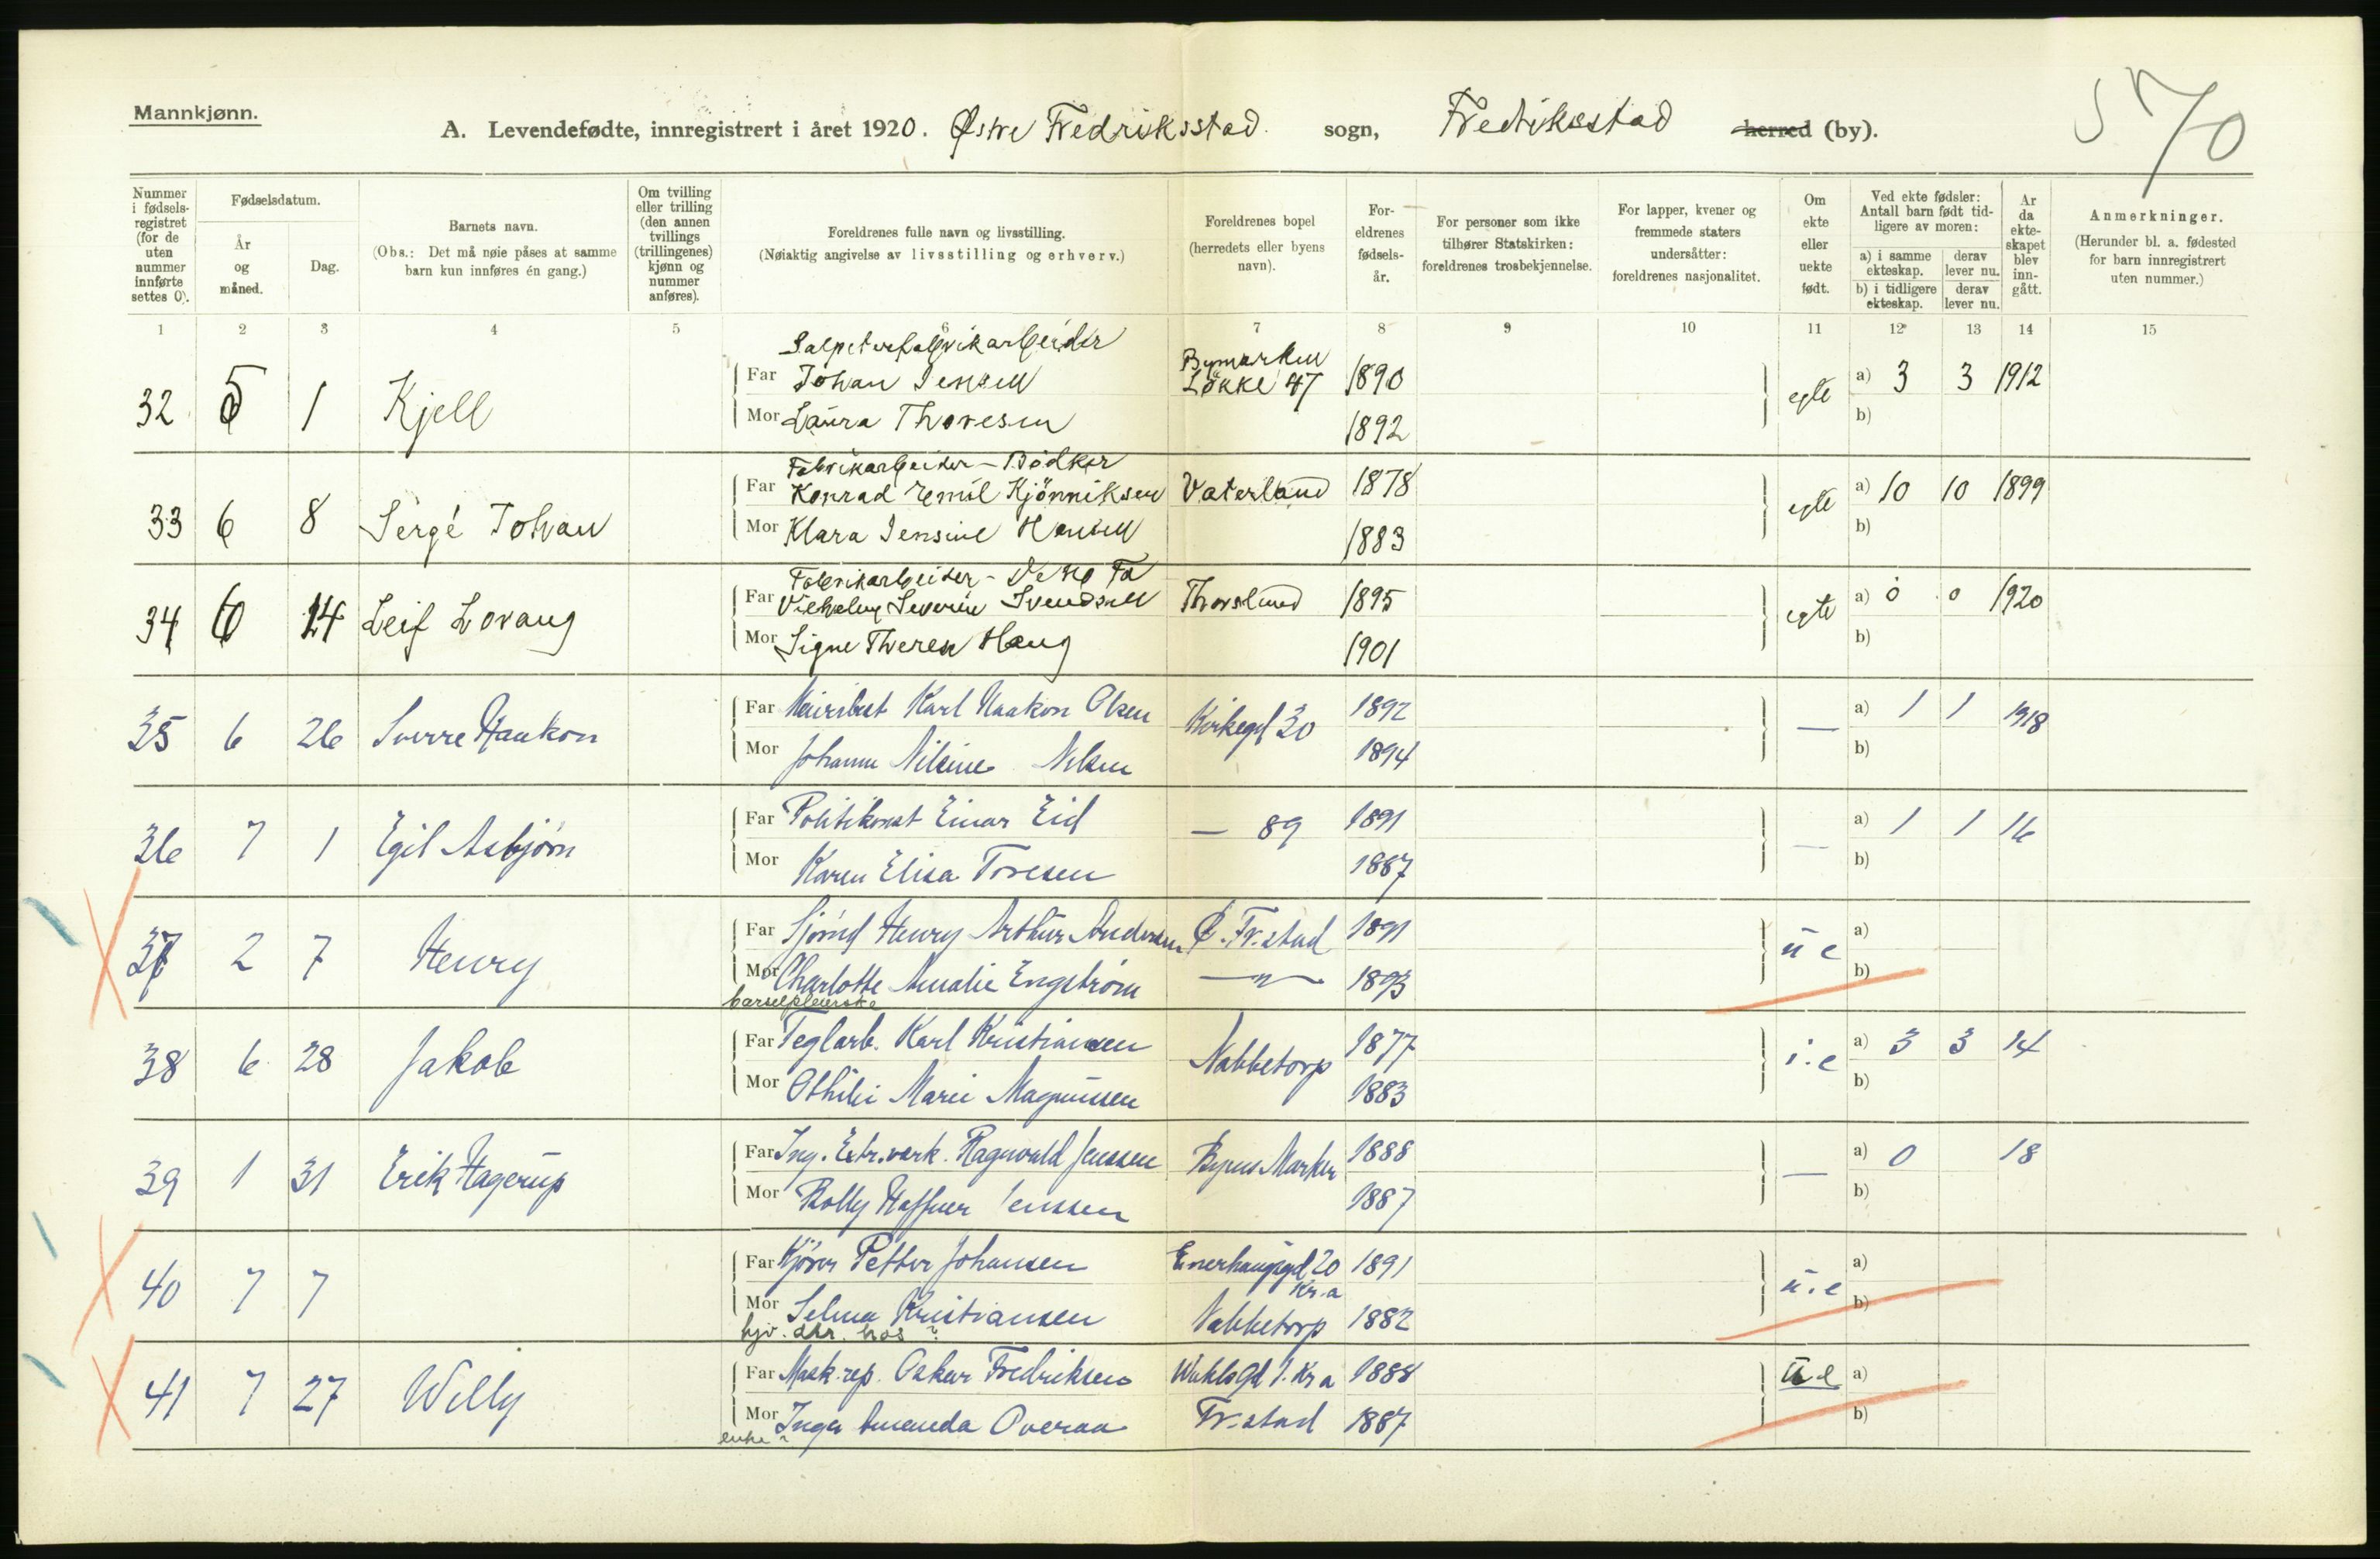 Mannkjønn.
570
A. Levendefødte, innregistrert i året 1920. Østre Fredriksstad sogn, Fredriksstad herred (by).
Nummer i fødsels- registret (for de uten nummer innførte settes 0).
Fødselsdatum.
År og måned.
Dag.
Barnets navn.
(Obs.: Det må nøie påses at samme barn kun innføres én gang.)
Om tvilling eller trilling (den annen tvillings (trillingenes) kjønn og nummer anføres).
Foreldrenes fulle navn og livsstilling.
(Nøiaktig angivelse av livsstilling og erhverv.)
Foreldrenes bopel (herredets eller byens navn).
For- eldrenes fødsels- år.
For personer som ikke tilhører Statskirken: foreldrenes trosbekjennelse.
For lapper, kvener og fremmede staters undersåtter: foreldrenes nasjonalitet.
Om ekte eller uekte født.
Ved ekte fødsler: Antall barn født tid- ligere av moren:
a) i samme ekteskap.
derav lever nu.
b) i tidligere ekteskap.
derav lever nu.
År da ekte- skapet blev inn- gått.
Anmerkninger.
(Herunder bl. a. fødested for barn innregistrert uten nummer.)
1 2 3 4 5 6 7 8 9 10 11 12 13 14 15
Salpeterfabrikarbeider
Bymarken
Far Johan Jensen Løkke 47 1890
32 5 1 Kjell egte a) 3 3 1912
Mor Laura Thoresen 1892 b)
Fabrikarbeider - Bødker
Far Konrad Emil Kjönniksen Vaterland 1878
33 6 8 Sergé Johan egte a) 10 10 1899
Mor Klara Jensine Hansen 1883 b)
Fabrikarbeider -
Far Vilhelm Severin Svendsen Thorslund 1895
34 6 14 Leif Lovang egte a) 0 0 1920
Mor Signe Therese Haug 1901 b)
Far Meieribest Karl Haakon Olsen Kirkegd 30 1892
35 6 26 Sverre Haakon — a) 1 1 1918
Mor Johanne Nilsine Nilsen 1894 b)
Far Politikonst Einar Eid — 89 1891
36 7 1 Egil Asbjørn — a) 1 1 16
Mor Karen Elisa Toresen 1887 b)
Far Sjømd Henry Arthur Andersen Ø. Fr.stad 1891
37 2 7 Henry u e a)
Mor Charlotte Amalie Engstrøm —"— 1893 b)
barselpleierske
Far Teglarb. Karl Kristiansen Nabbetorp 1877
38 6 28 Jakob i.e a) 3 3 14
Mor Othilie Marie Magnussen 1883 b)
Far Ing. Ragnvald Jenssen Byens Marker 1888
39 1 31 Erik Hagerup — a) 0 18
Mor Bolly Haffner Jenssen 1887 b)
Far Kjører Petter Johansen Enerhauggd 20 Kr.a 1891
40 7 7 u.e a)
Mor Selma Kristiansen Nabbetorp 1882 b)
hjv. dtr. hos ?
Far Mask.rep. Oskar Fredriksen Wahls Gd 1. Kr a 1888
41 7 27 Willy u e a)
Mor Inga Amanda Overaa Fr.stad 1887 b)
enke ?